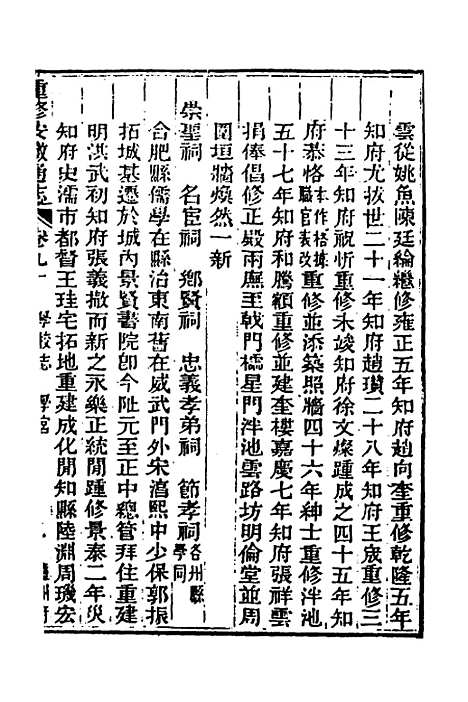 雲從姚魚陳廷綸繼修雍正五年知府趙向奎重修乾隆五年
知府尤拔世二十一年知府趙瓚二十八年知府王宬重修三
十三年知府祝忻重修未竣知府徐文燦踵成之四十五年知
府恭恪本作格據職官表改重修並添築照牆四十六年紳士重修泮池
五十七年知府和騰額重修並建奎樓嘉慶七年知府張祥雲
捐俸倡修正殿兩廡至戟門櫺星門泮池雲路坊明倫堂並周
圍垣牆煥然一新
崇聖祠　名宦祠　鄉賢祠　忠義孝弟祠　節孝祠各州縣學同
合肥縣儒學在縣治東南舊在威武門外宋湻熙中少保郭振
拓城基遷於城內景賢書院卽今阯元至正中總管拜住重建
明洪武初知府張義撤而新之永樂正統閒踵修景泰二年災
知府史濡市都督王珪宅拓地重建成化閒知縣陸淵周璣宏
重修安徽通志　卷九十　學校志　學宮